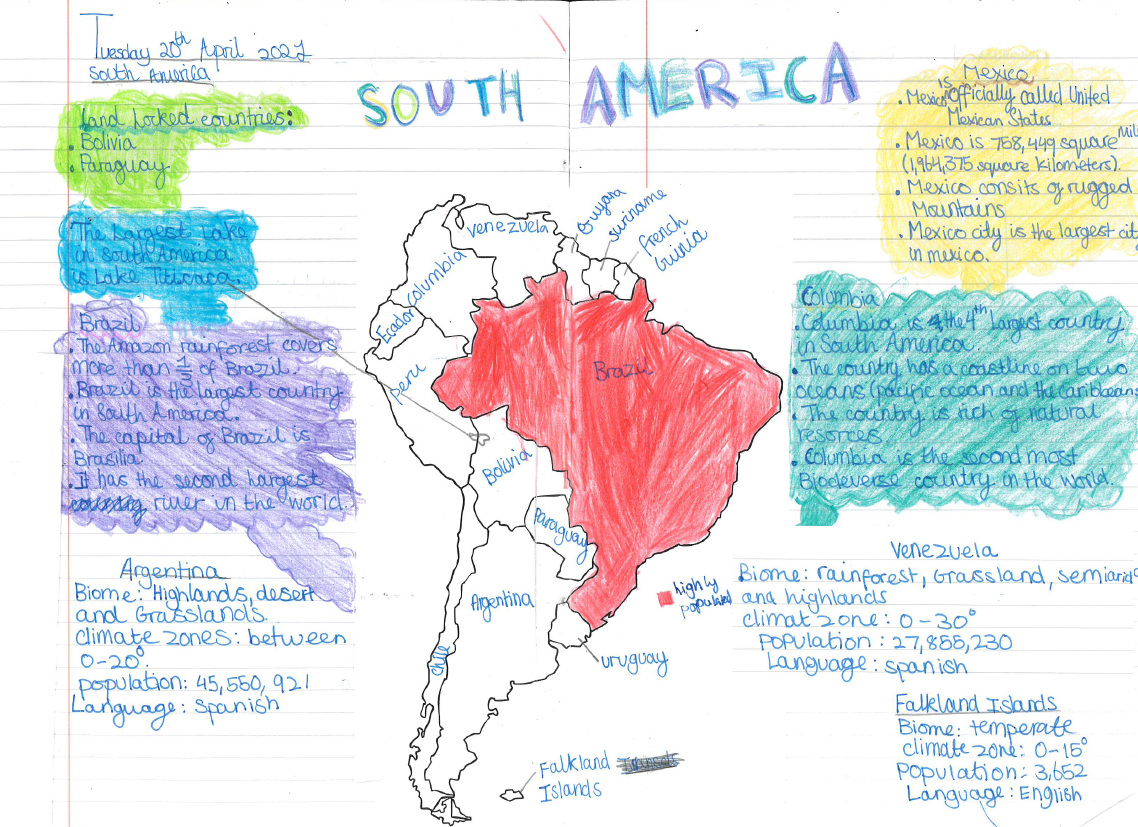 Tuesday 20th April 2021
South America
SOUTH AMERICA
Land locked countries:
. Bolivia
. Paraguay
The Largest Lake
in South America
is Lake Titicaca.
Brazil
. The Amazon rainforest covers
more than 1/3 of Brazil.
. Brazil is the largest country
in South America.
. The capital of Brazil is
Brasilia
. It has the second largest
river in the world.
Argentina
Biome: Highlands, desert
and Grasslands.
climate zones: between
0-20°.
population: 45,550,921
Language: spanish
venezuela
Guyana
suriname
french
Guinia
columbia
Ecador
peru
Brazil
Bolivia
Paraguay
Argentina
chile
uruguay
highly
populated
Falkland
Islands
Mexico
. Mexico is officially called United
Mexican States
. Mexico is 758,449 square Mil
(1,964,375 square kilometers).
. Mexico consits of rugged
Mountains
. Mexico city is the largest cit
in mexico.
Columbia
. Columbia is the 4th largest country
in South America.
. The country has a coastline on two
oceans (pacific ocean and the caribbean
. The country is rich of natural
resorces.
. Columbia is the second most
Biodeverse country in the world.
Venezuela
Biome: rainforest, Grassland, semiarid
and highlands
climat zone: 0-30°
Population: 27,855,230
Language: spanish
Falkland Islands
Biome: temperate
climate zone: 0-15°
Population: 3,652
Language: English